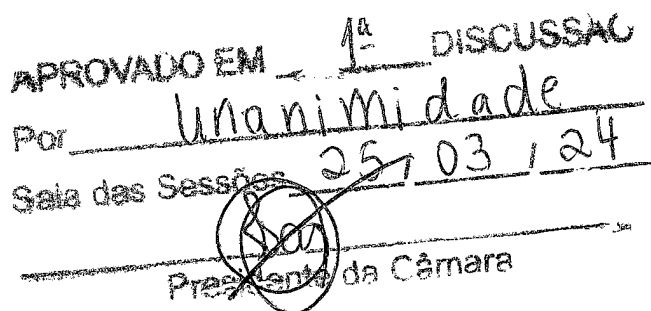 APROVADO EM 1ª DISCUSSÃO
Por Unanimidade
Sala das Sessões 25, 03, 24
Presidente da Câmara